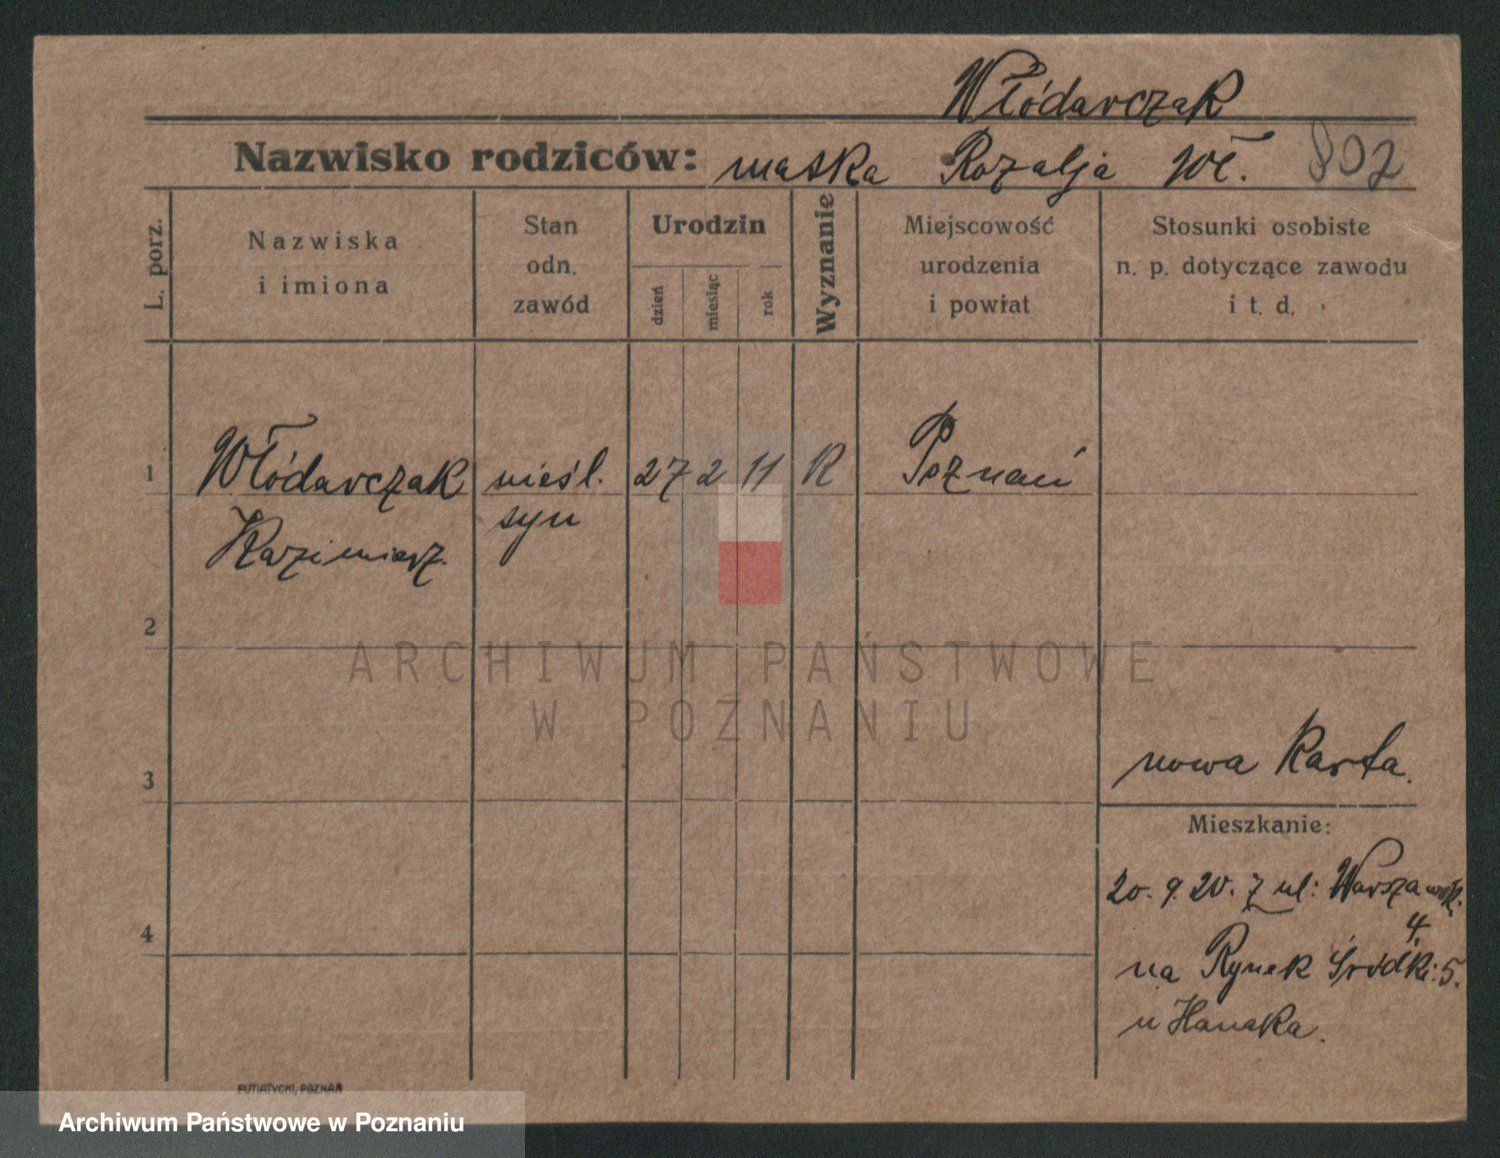 Włódarczak
Nazwisko rodziców: matka Rozalja Wł. 802
L. porz.
Nazwiska
i imiona
Stan
odn.
zawód
Urodzin
dzień
miesiąc
rok
Wyznanie
Miejscowość
urodzenia
i powiat
Stosunki osobiste
n. p. dotyczące zawodu
i t. d.
1 Włódarczak nieśl. 27 2 11 R Poznań
syn
Kazimierz.
2
ARCHIWUM PAŃSTWOWE
W POZNANIU
nowa Karta.
3
Mieszkanie:
20. 9. 20. z ul: Warszawsk.
4.
4
na Rynek Śródki: 5.
u Hanaka.
PUTIATYCKI, POZNAŃ
Archiwum Państwowe w Poznaniu